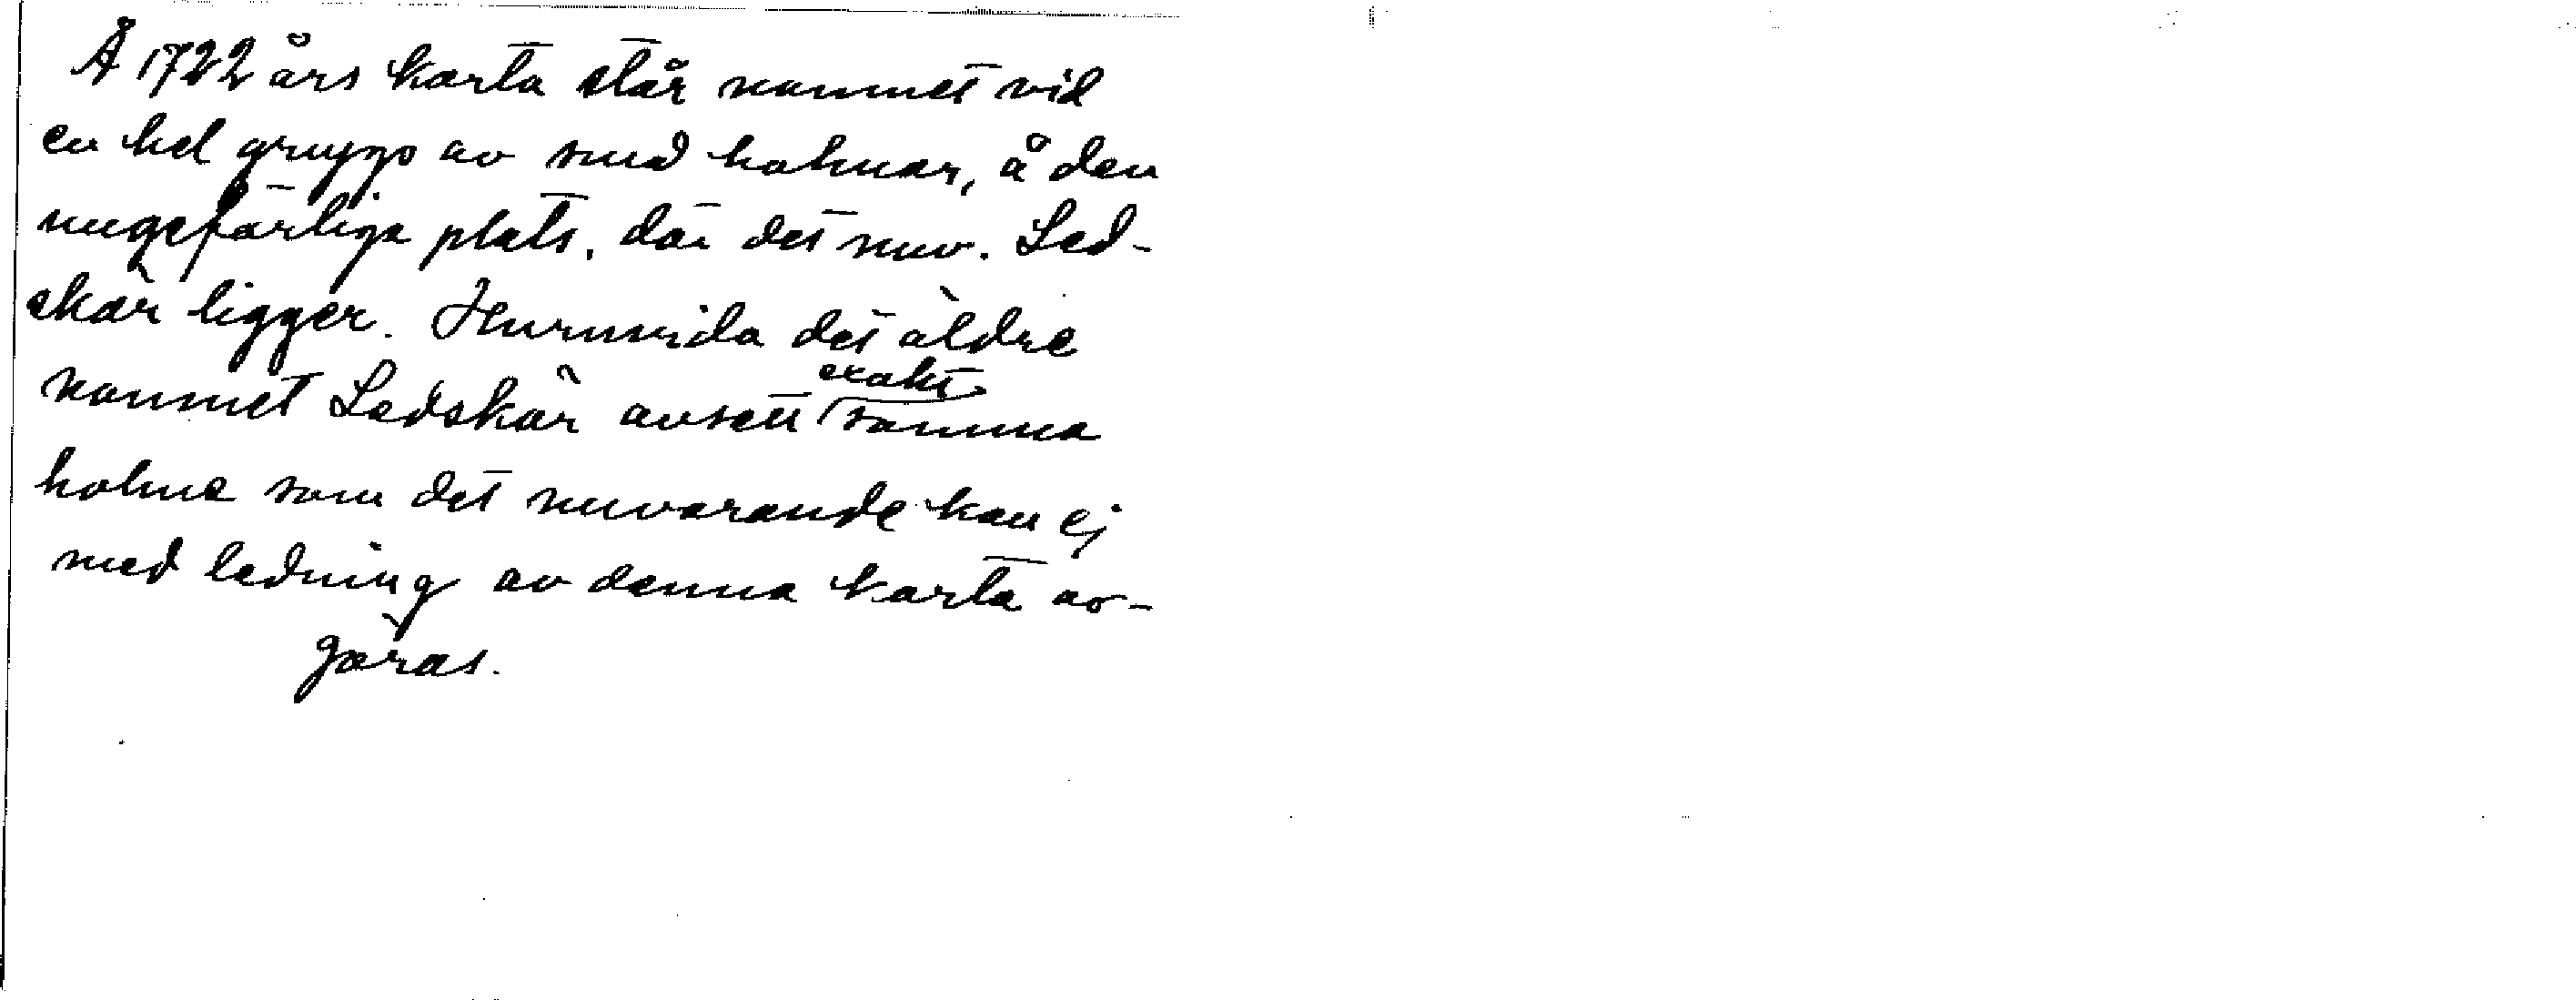 Å 1722 års karta står namnet vid
en hel grupp av små holmar, å den
ungefärliga plats, där det nuv. Led-
skär ligger. Huruvida det äldre
namnet Ledskär avsett exakt samma
holme som det nuvarande kan ej
med ledning av denna karta av-
göras.